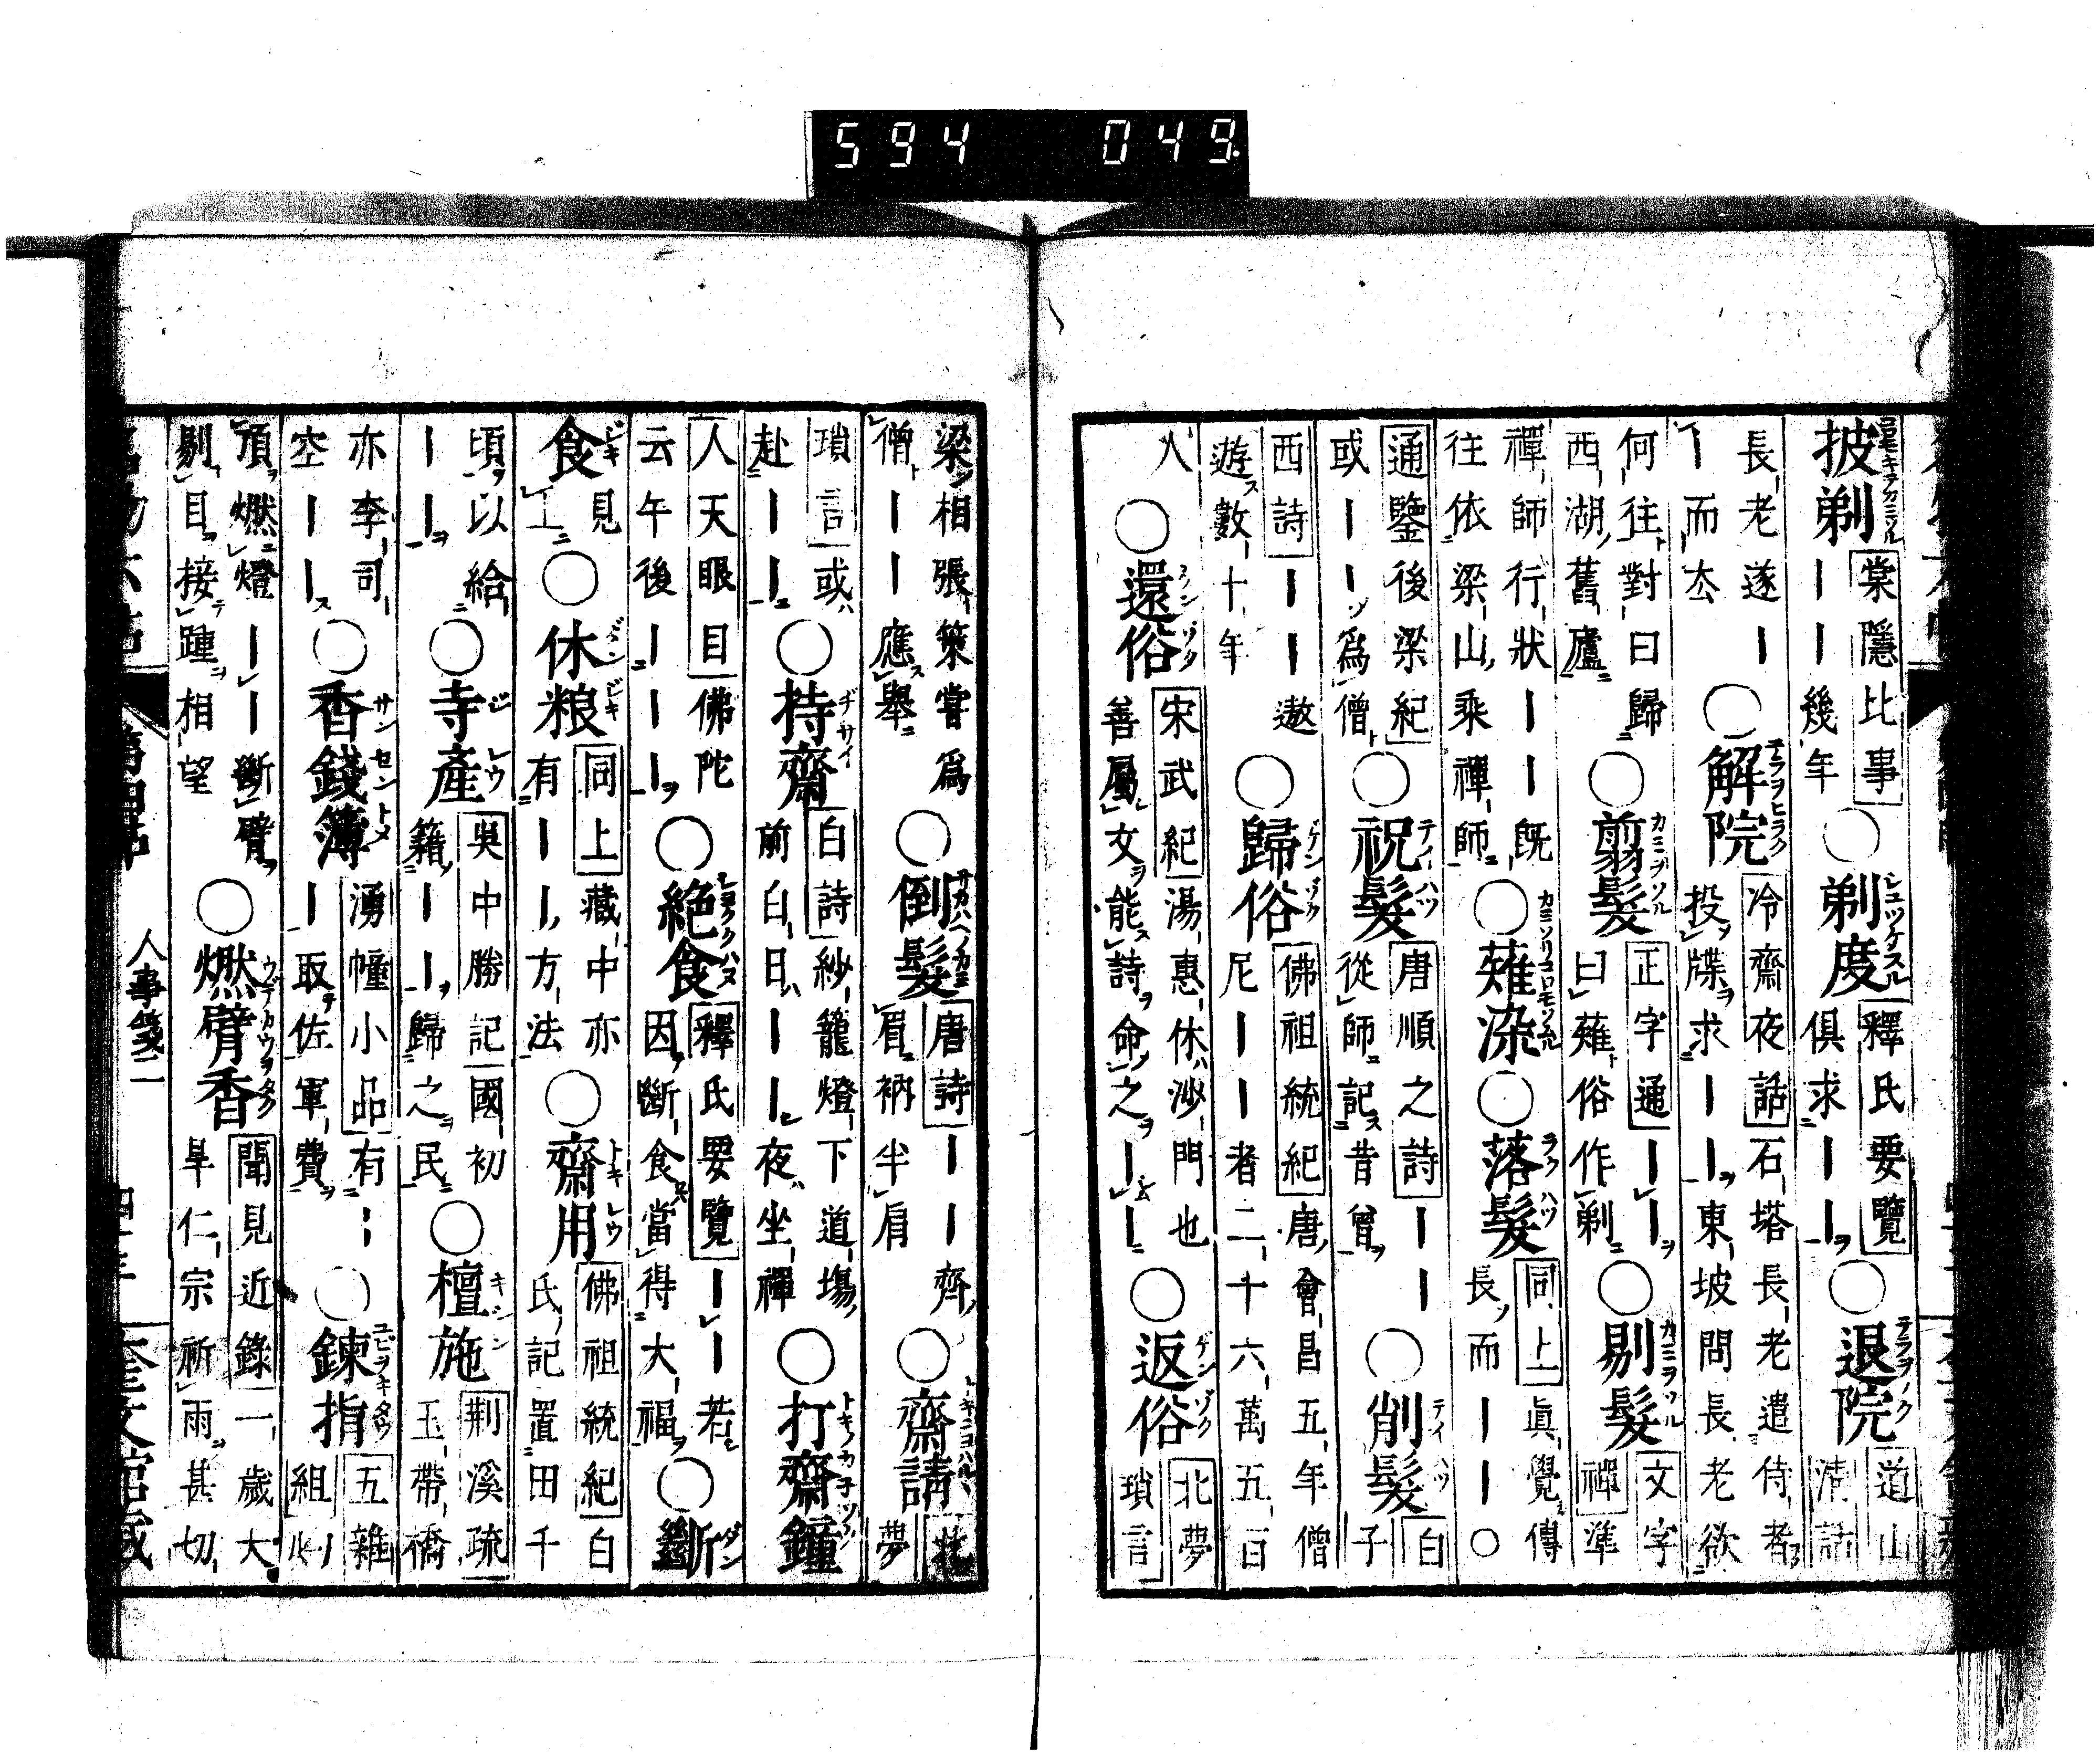 594 049
披剃 棠隱比事 ーー幾年 ○剃度 釋氏要覽 俱求ーー ○退院 道山清話
長老遂ーー而去 ○解院 冷齋夜話 石塔長老遣侍者投牒求ーー東坡問長老欲
何往對曰歸西湖舊廬 ○翦髮 正字通 ーー曰薙俗作剃 ○剔髮 文字禪 準
禪師行狀ーー既往依梁山乘禪師 ○薙染 ○落髮 同上 眞覺傳長而ーー○
通鑒後梁紀 或ーー爲僧 ○祝髮 唐順之詩 ーー從師記昔曾 ○削髮 白子
西詩 ーー遨遊數十年 ○歸俗 佛祖統紀 唐會昌五年僧尼ーー者二十六萬五百
人 ○還俗 宋武紀 湯惠休沙門也善屬文能詩命之ーー ○返俗 北夢瑣言
梁相張策嘗爲僧ーー應擧 ○倒髮 唐詩 ーー齊眉衲半肩 ○齋請 北夢
瑣言 或赴ーー ○持齋 白詩 紗籠燈下道場前白日ーー夜坐禪 ○打齋鐘
人天眼目 佛陀云午後ーー ○絶食 釋氏要覽 ーー若因斷食當得大福 ○斷
食 見上 ○休粮 同上 藏中亦有ーー方法 ○齋用 佛祖統紀 白氏記置田千
頃以給ーー ○寺產 吳中勝記 國初籍ーー歸之民 ○檀施 荆溪疏 玉帶橋
亦李司空ーー ○香錢簿 湧幢小品 有ーー取佐軍費 ○鍊指 五雜組 ー
頂燃燈ーー斷臂剔目接踵相望 ○燃臂香 聞見近錄 一歲大旱仁宗祈雨甚切
人事箋二
奎文館藏